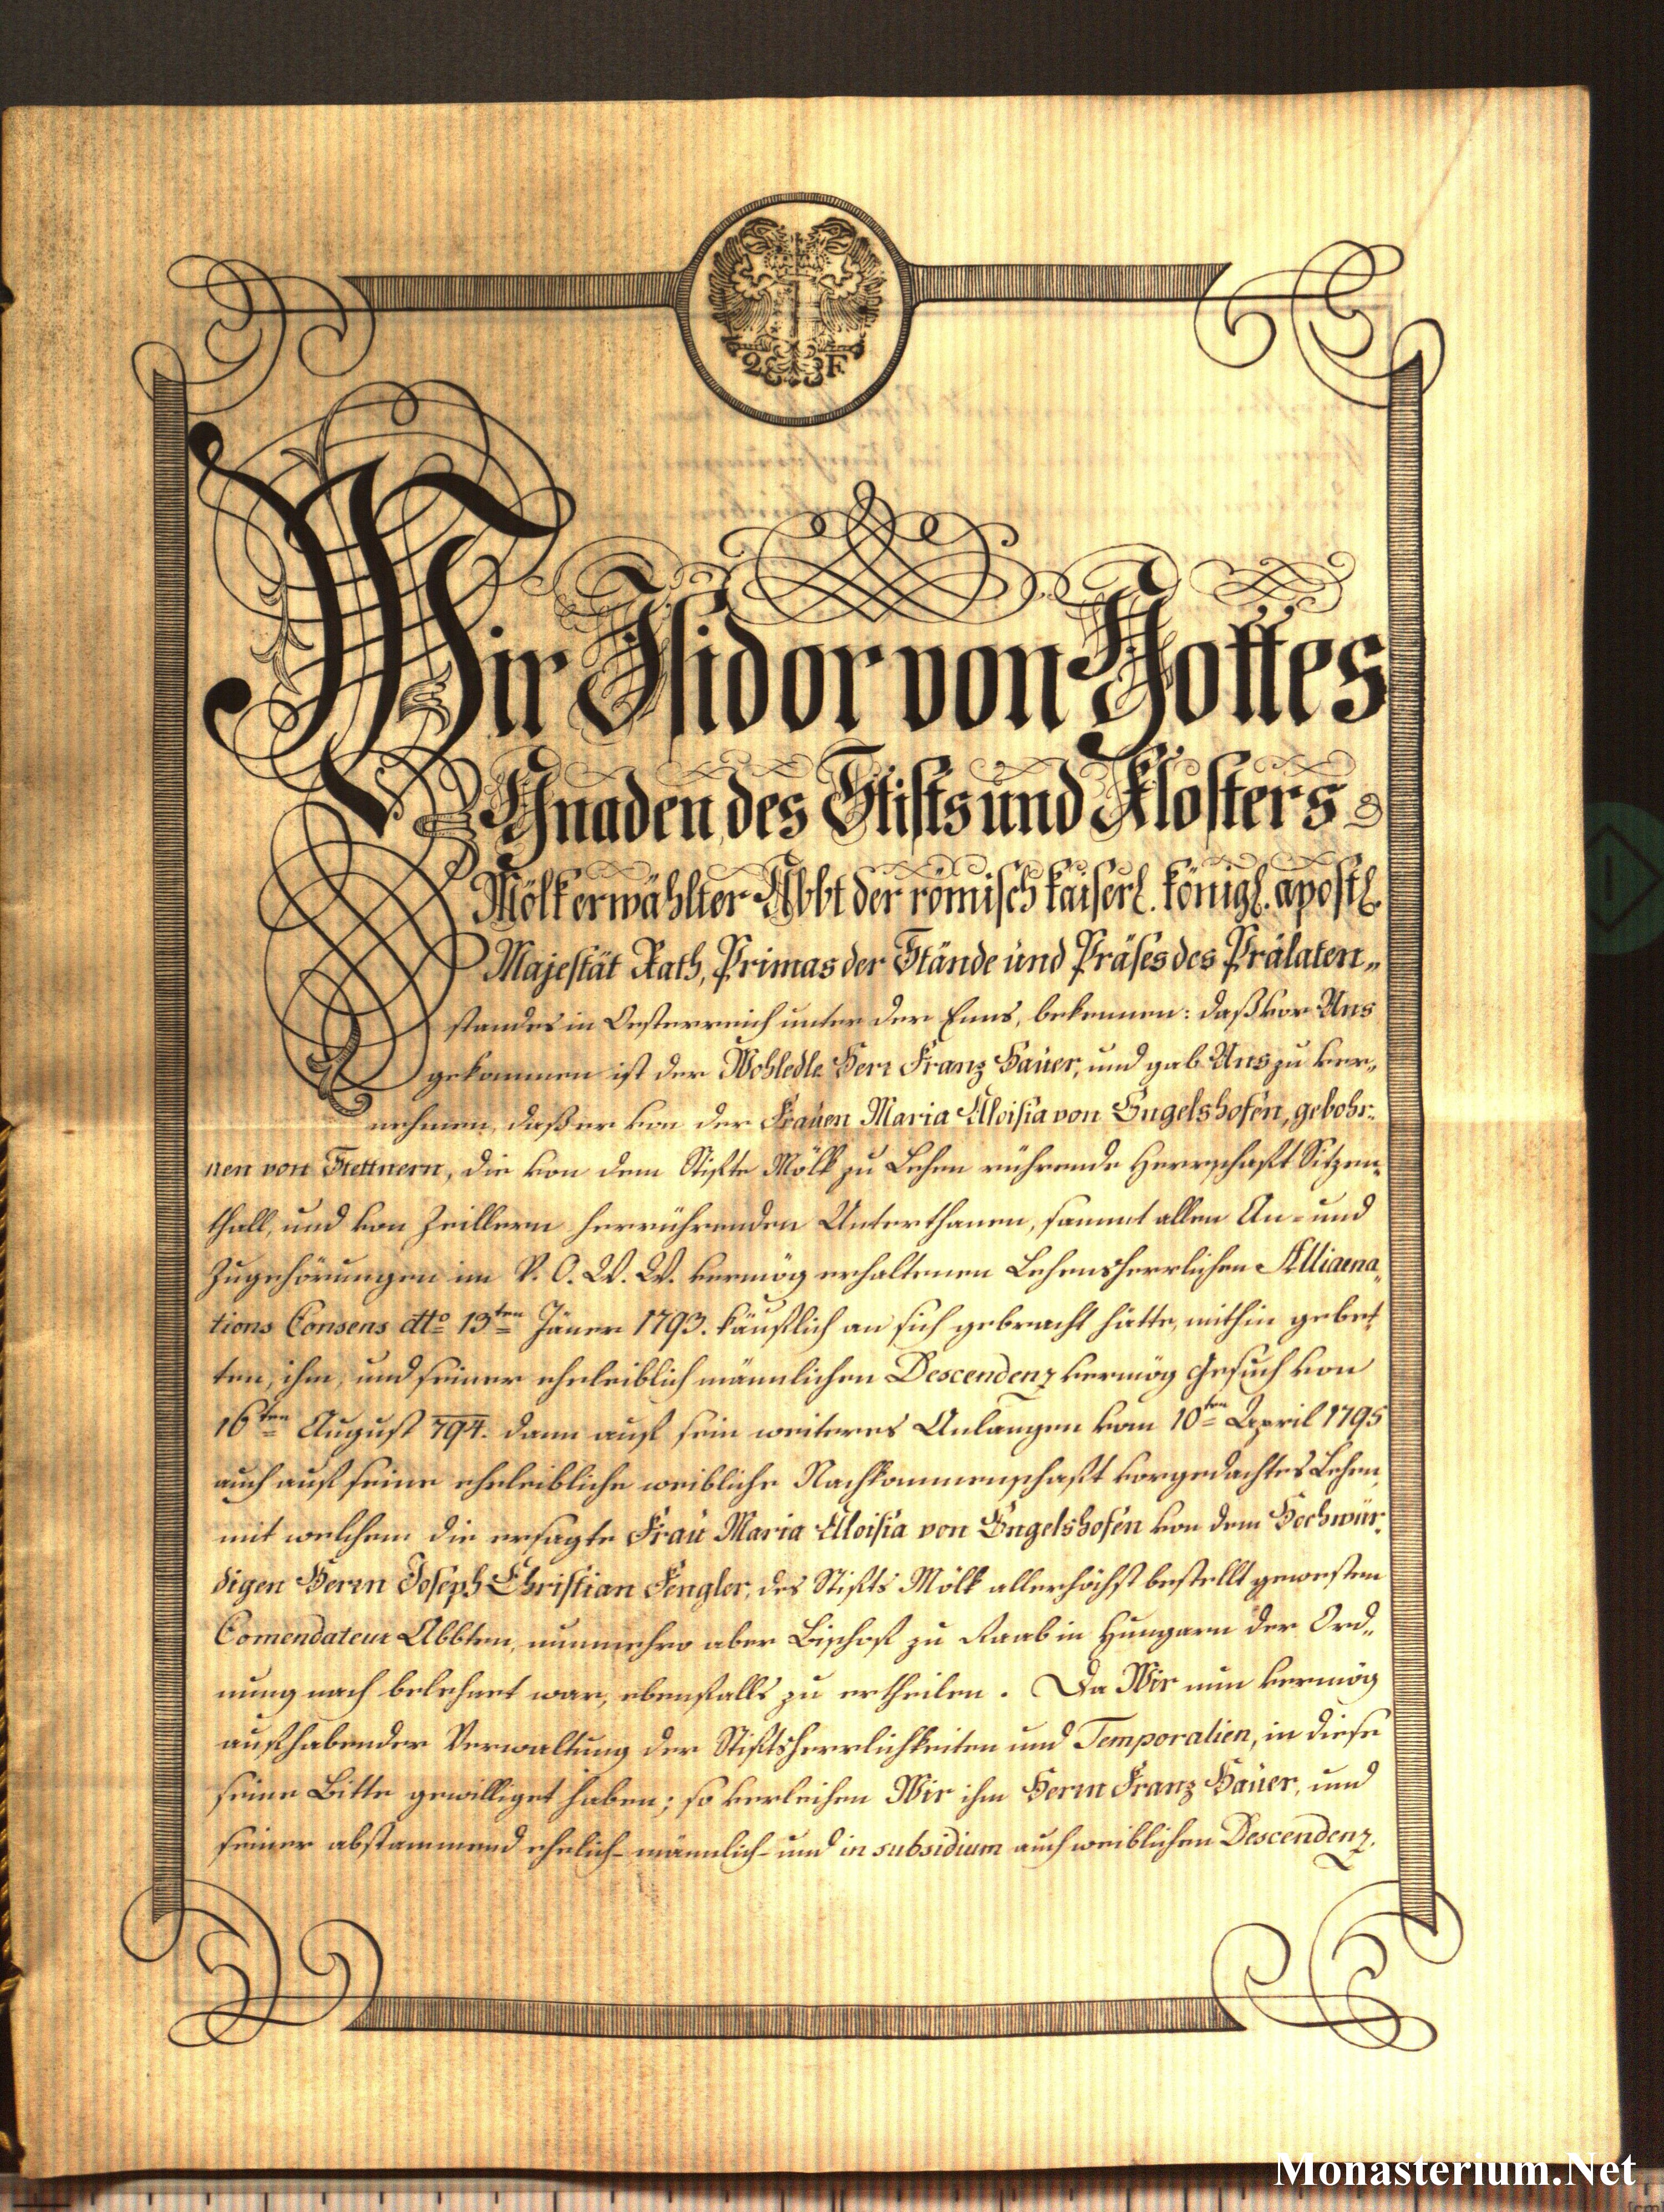 2 F
Wir Isidor von Gottes
Gnaden, des Stifts und Klosters
Mölk erwählter Abbt der römisch kaiserl. königl. apostl.
Majestät Rath, Primas der Stände und Präses des Prälaten„
standes in Oesterreich unter der Enns, bekennen: daß vor Uns
gekommen ist der Wohledle Herr Franz Hauer, und gab Uns zu ver„
nehmen, daß er von der Frauen Maria Aloisia von Engelshofen, gebohr„
nen von Stettnern, die von dem Stifte Mölk zu Lehen rührende Herrschaft Sitzen„
thall, und von Zeillern herrührenden Unterthanen, sammt allen An- und
Zugehörungen im V. O. W. W. vermög erhaltenen Lehensherrlichen Alliaena„
tions Consens dtto 13ten Jäner 1793. käuflich an sich gebracht hätte, mithin gebet„
ten, ihm, und seiner eheleiblich männlichen Descendenz vermög Gesuch von
16ten August 794. dann auf sein weiteres Anlangen vom 10ten April 1795
auch auf seine eheleibliche weibliche Nachkommenschaft vorgedachtes Lehen,
mit welchem die ersagte Frau Maria Aloisia von Engelshofen von dem Hochwür„
digen Herrn Joseph Christian Fengler, des Stifts Mölk allerhöchst bestellt gewesten
Comendateur Abbten, nunmehro aber Bischof zu Raab in Hungarn der Ord„
nung nach belehnet war, ebenfalls zu ertheilen. Da Wir nun vermög
aufhabender Verwaltung der Stiftsherrlichkeiten und Temporalien, in diese
seine Bitte gewilliget haben; so verleihen Wir ihm Herrn Franz Hauer, und
seiner abstammend ehelich- männlich- und in subsidium auch weiblichen Descendenz,
Monasterium.Net